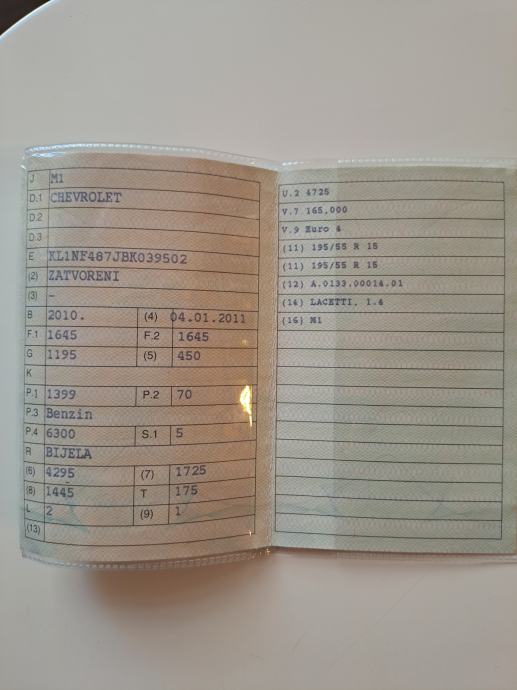 J M1
D.1 CHEVROLET
D.2
D.3
E KL1NF487JBK039502
(2) ZATVORENI
(3) -
B 2010. (4) 04.01.2011
F.1 1645 F.2 1645
G 1195 (5) 450
K
P.1 1399 P.2 70
P.3 Benzin
P.4 6300 S.1 5
R BIJELA
(6) 4295 (7) 1725
(8) 1445 T 175
L 2 (9) 1
(13)
U.2 4725
V.7 165,000
V.9 Euro 4
(11) 195/55 R 15
(11) 195/55 R 15
(12) A.0133.00014.01
(14) LACETTI, 1.4
(16) M1